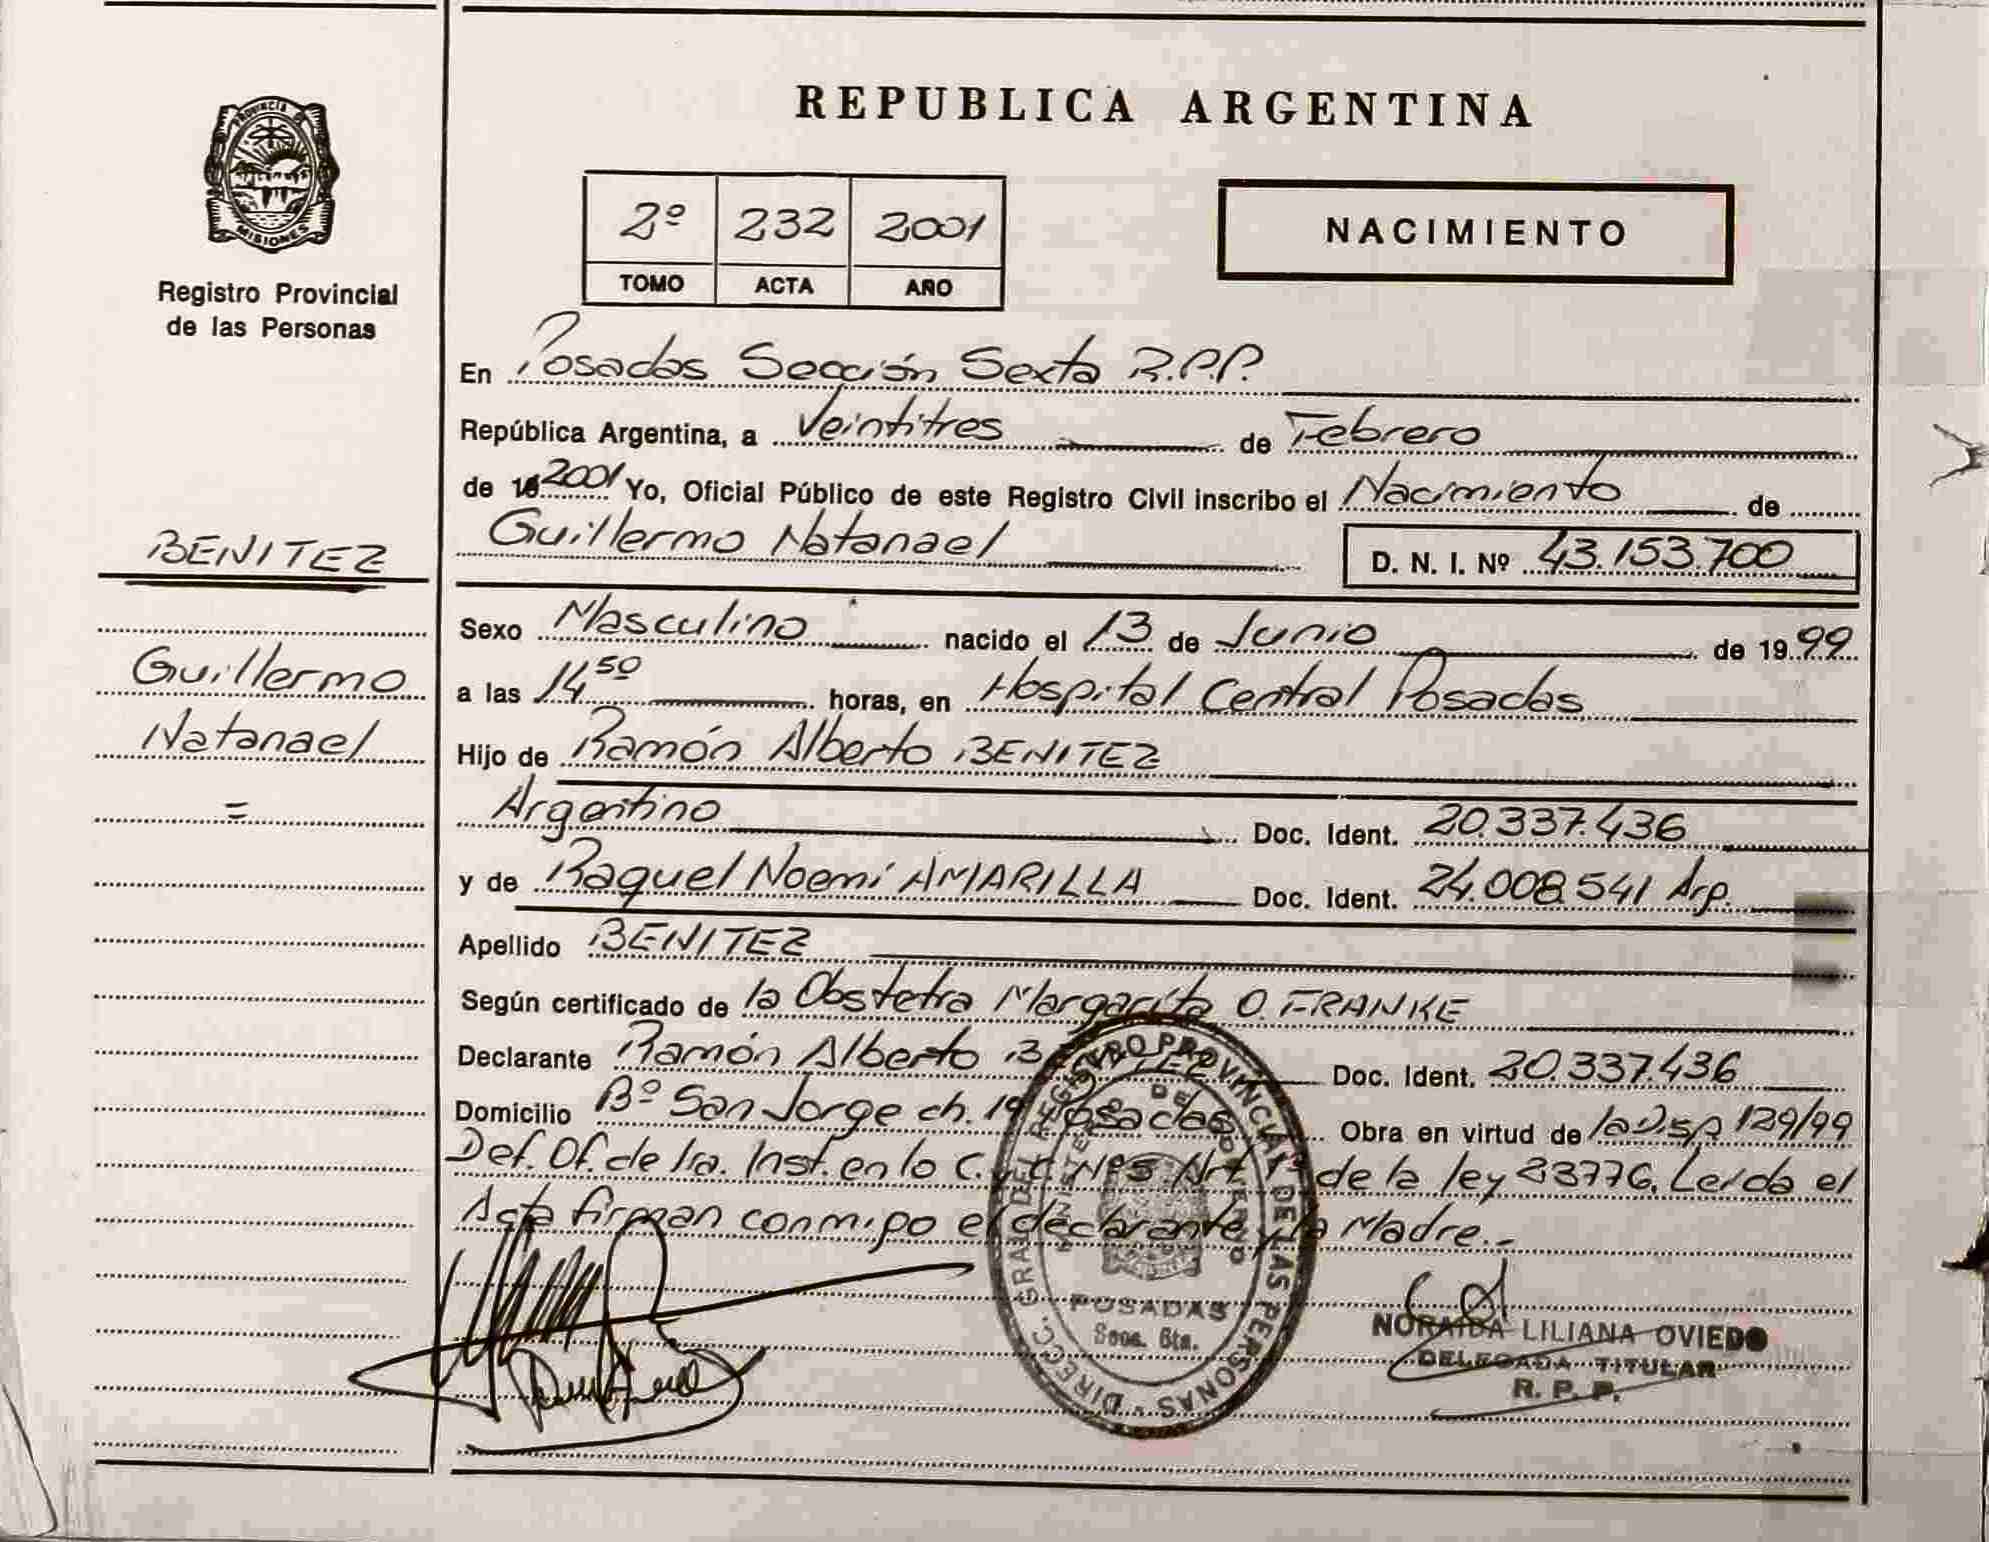 REPUBLICA ARGENTINA
PROVINCIA DE
MISIONES
Registro Provincial
de las Personas
2º 232 2001
TOMO ACTA AÑO
NACIMIENTO
En Posadas Sección Sexta R.P.P.
República Argentina, a Veintitres de Febrero
de 19 2001 Yo, Oficial Público de este Registro Civil inscribo el Nacimiento de
Guillermo Natanael D. N. I. Nº 43.153.700
BENITEZ
Guillermo
Natanael
=
Sexo Masculino nacido el 13 de Junio de 1999
a las 14 50 horas, en Hospital Central Posadas
Hijo de Ramón Alberto BENITEZ
Argentino Doc. Ident. 20.337.436
y de Raquel Noemí AMARILLA Doc. Ident. 24.008.541 Arg.
Apellido BENITEZ
Según certificado de la Obstetra Margarita O. FRANKE
Declarante Ramón Alberto BENITEZ Doc. Ident. 20.337.436
Domicilio Bº San Jorge ch. 19 Posadas Obra en virtud de la Disp 129/99
Def. Of. de 1ra. Inst. en lo C. y C. Nº5 Art. de la ley 23776. Leída el
Acta firman conmigo el declarante y la Madre.-
DIRECC. GRAL DEL REGISTRO PROVINCIAL DE LAS PERSONAS
MINISTERIO DE GOBIERNO
POSADAS
Secc. 6ta.
NORAIDA LILIANA OVIEDO
DELEGADA TITULAR
R. P. P.